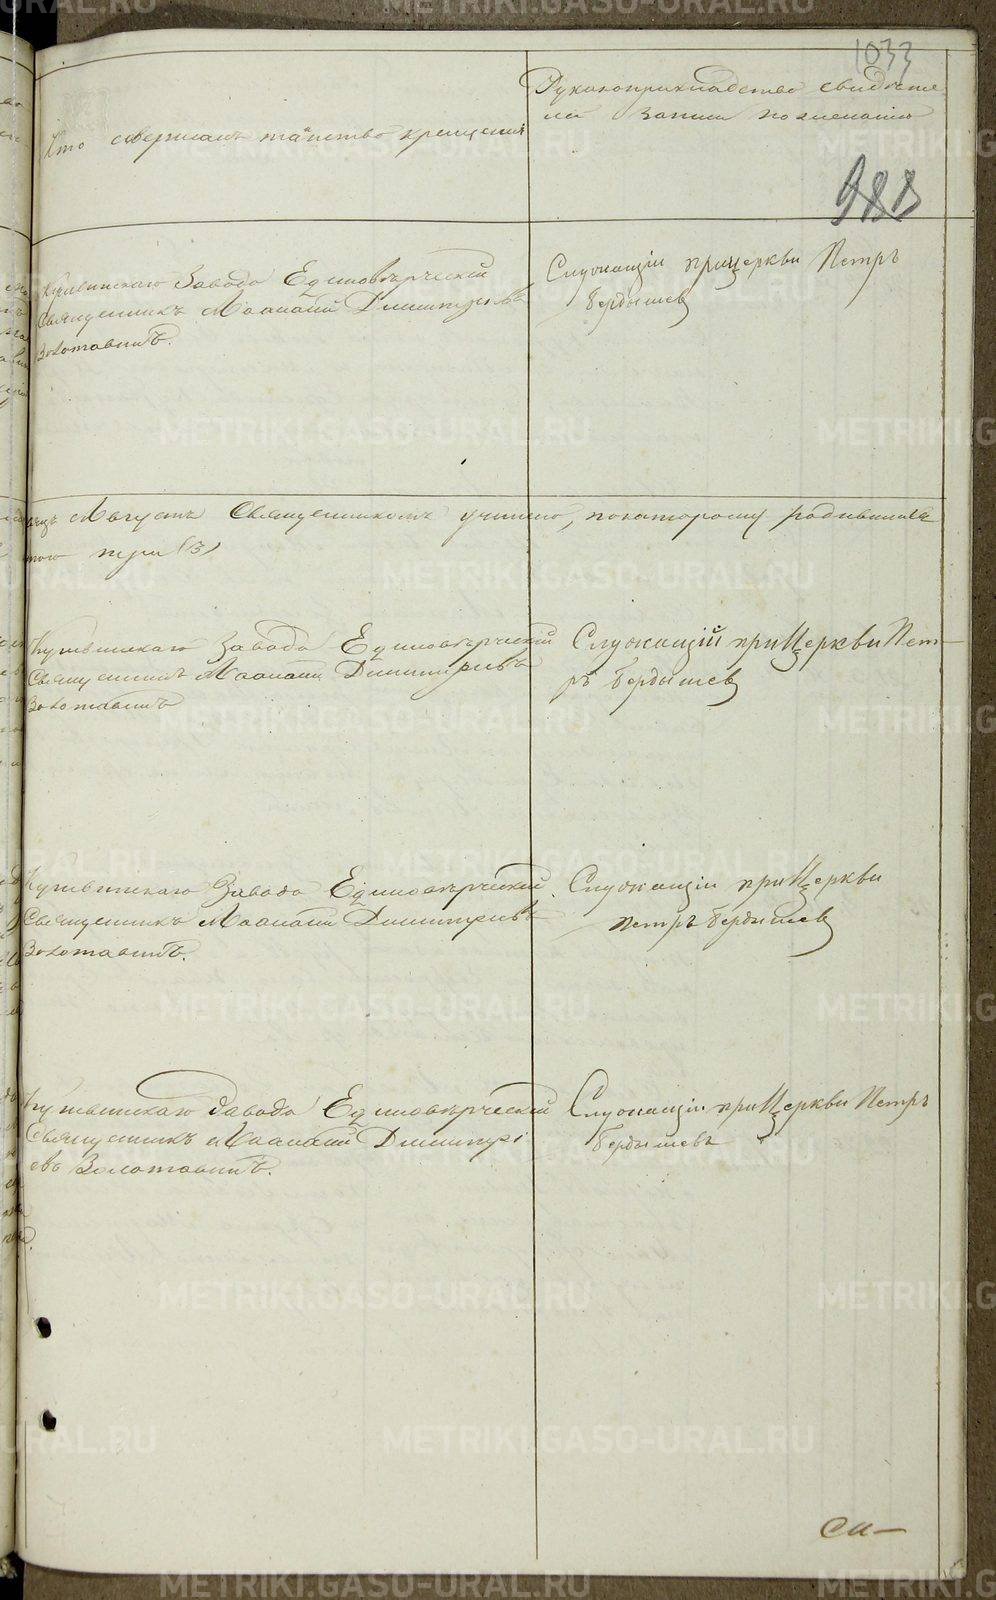 1033
Кто совершалъ таинство крещенія
Рукоприкладство свидѣте
ля записи по желанію
988
Кушвинскаго Завода Единовѣрческій
Священникъ Іоаннъ Димитріевъ
Золотавинъ.
Служащій при церкви Петръ
Бердышев
Августъ Священникомъ учинено, покоторому родившихся
три (3)
Кушвинскаго Завода Единовѣрческій
Священникъ Іоаннъ Димитріевъ
Золотавинъ
Служащій при Церкви Пет
ръ Бердышев
Кушвинскаго Завода Единовѣрческій
Священникъ Іоаннъ Димитріевъ
Золотавинъ.
Служащіи при Церкви
Петръ Бердышев
Кушвинскаго Завода Единовѣрческій
Священникъ Іоаннъ Димитрі
евъ Золотавинъ.
Служащіи при Церкви Петръ
Бердышевъ
Си-
METRIKI.GASO-URAL.RU